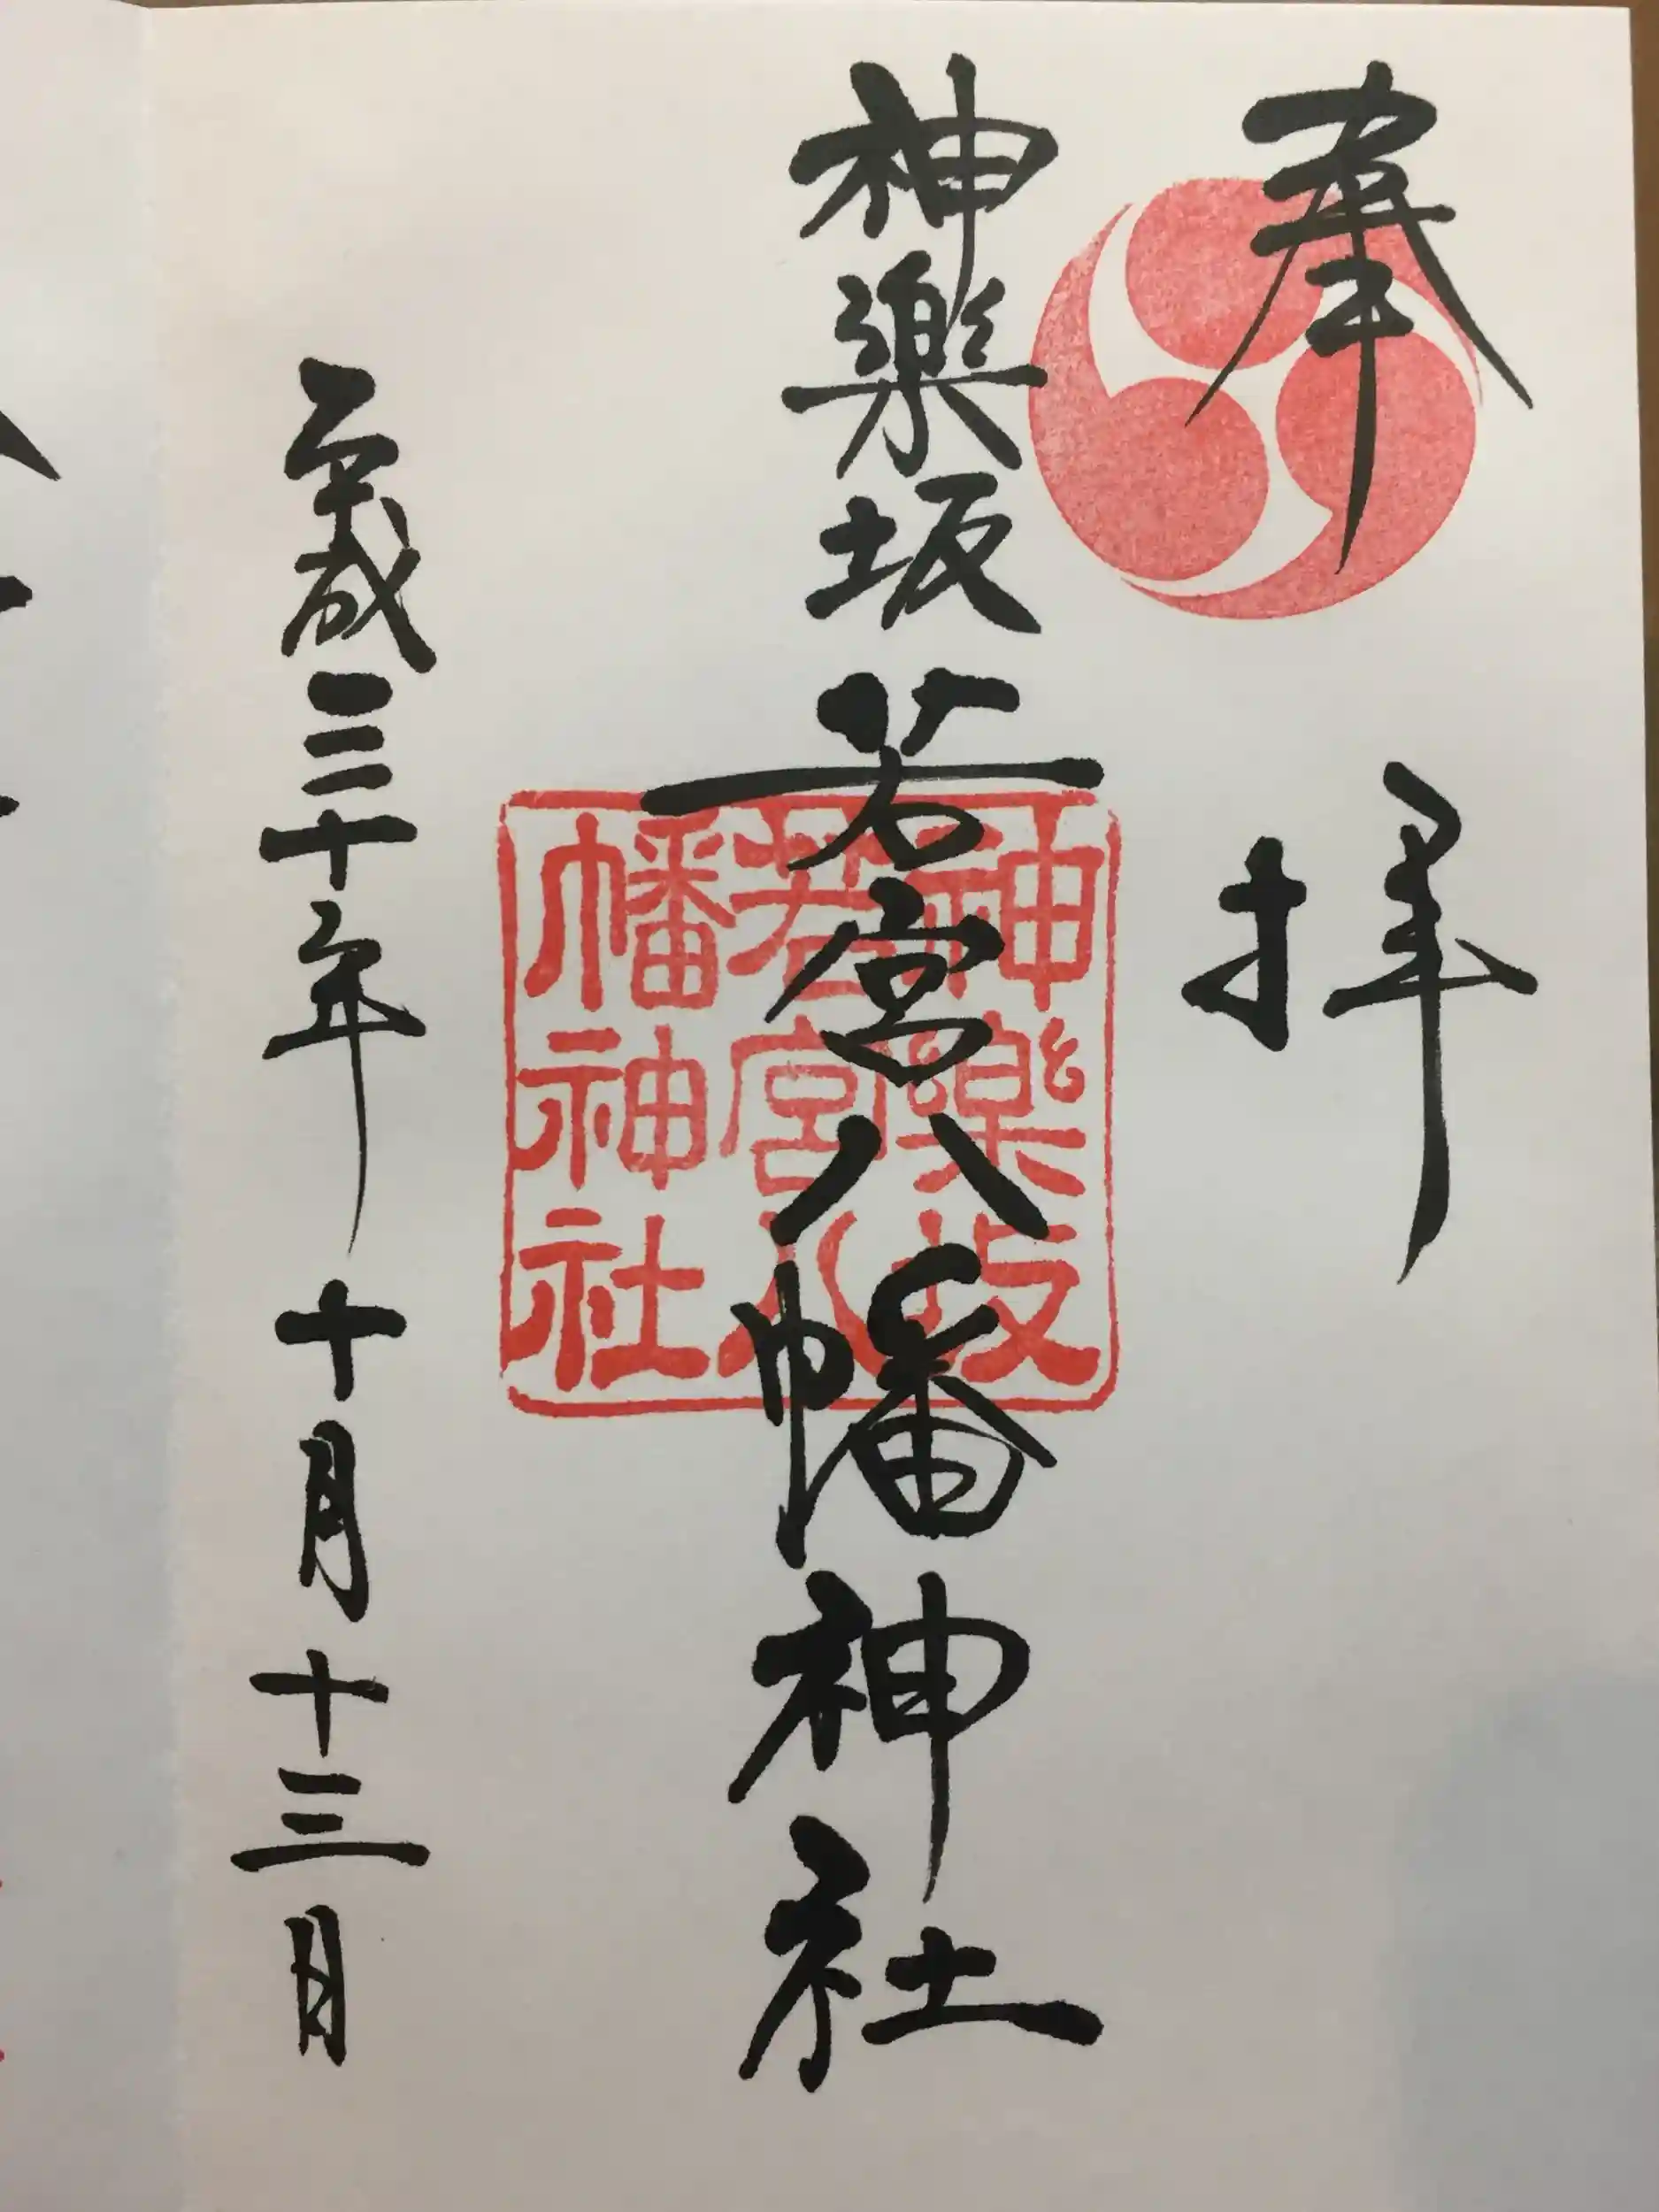 奉拝
神楽坂若宮八幡神社
平成三十年十月十三日
神楽坂
若宮八
幡神社